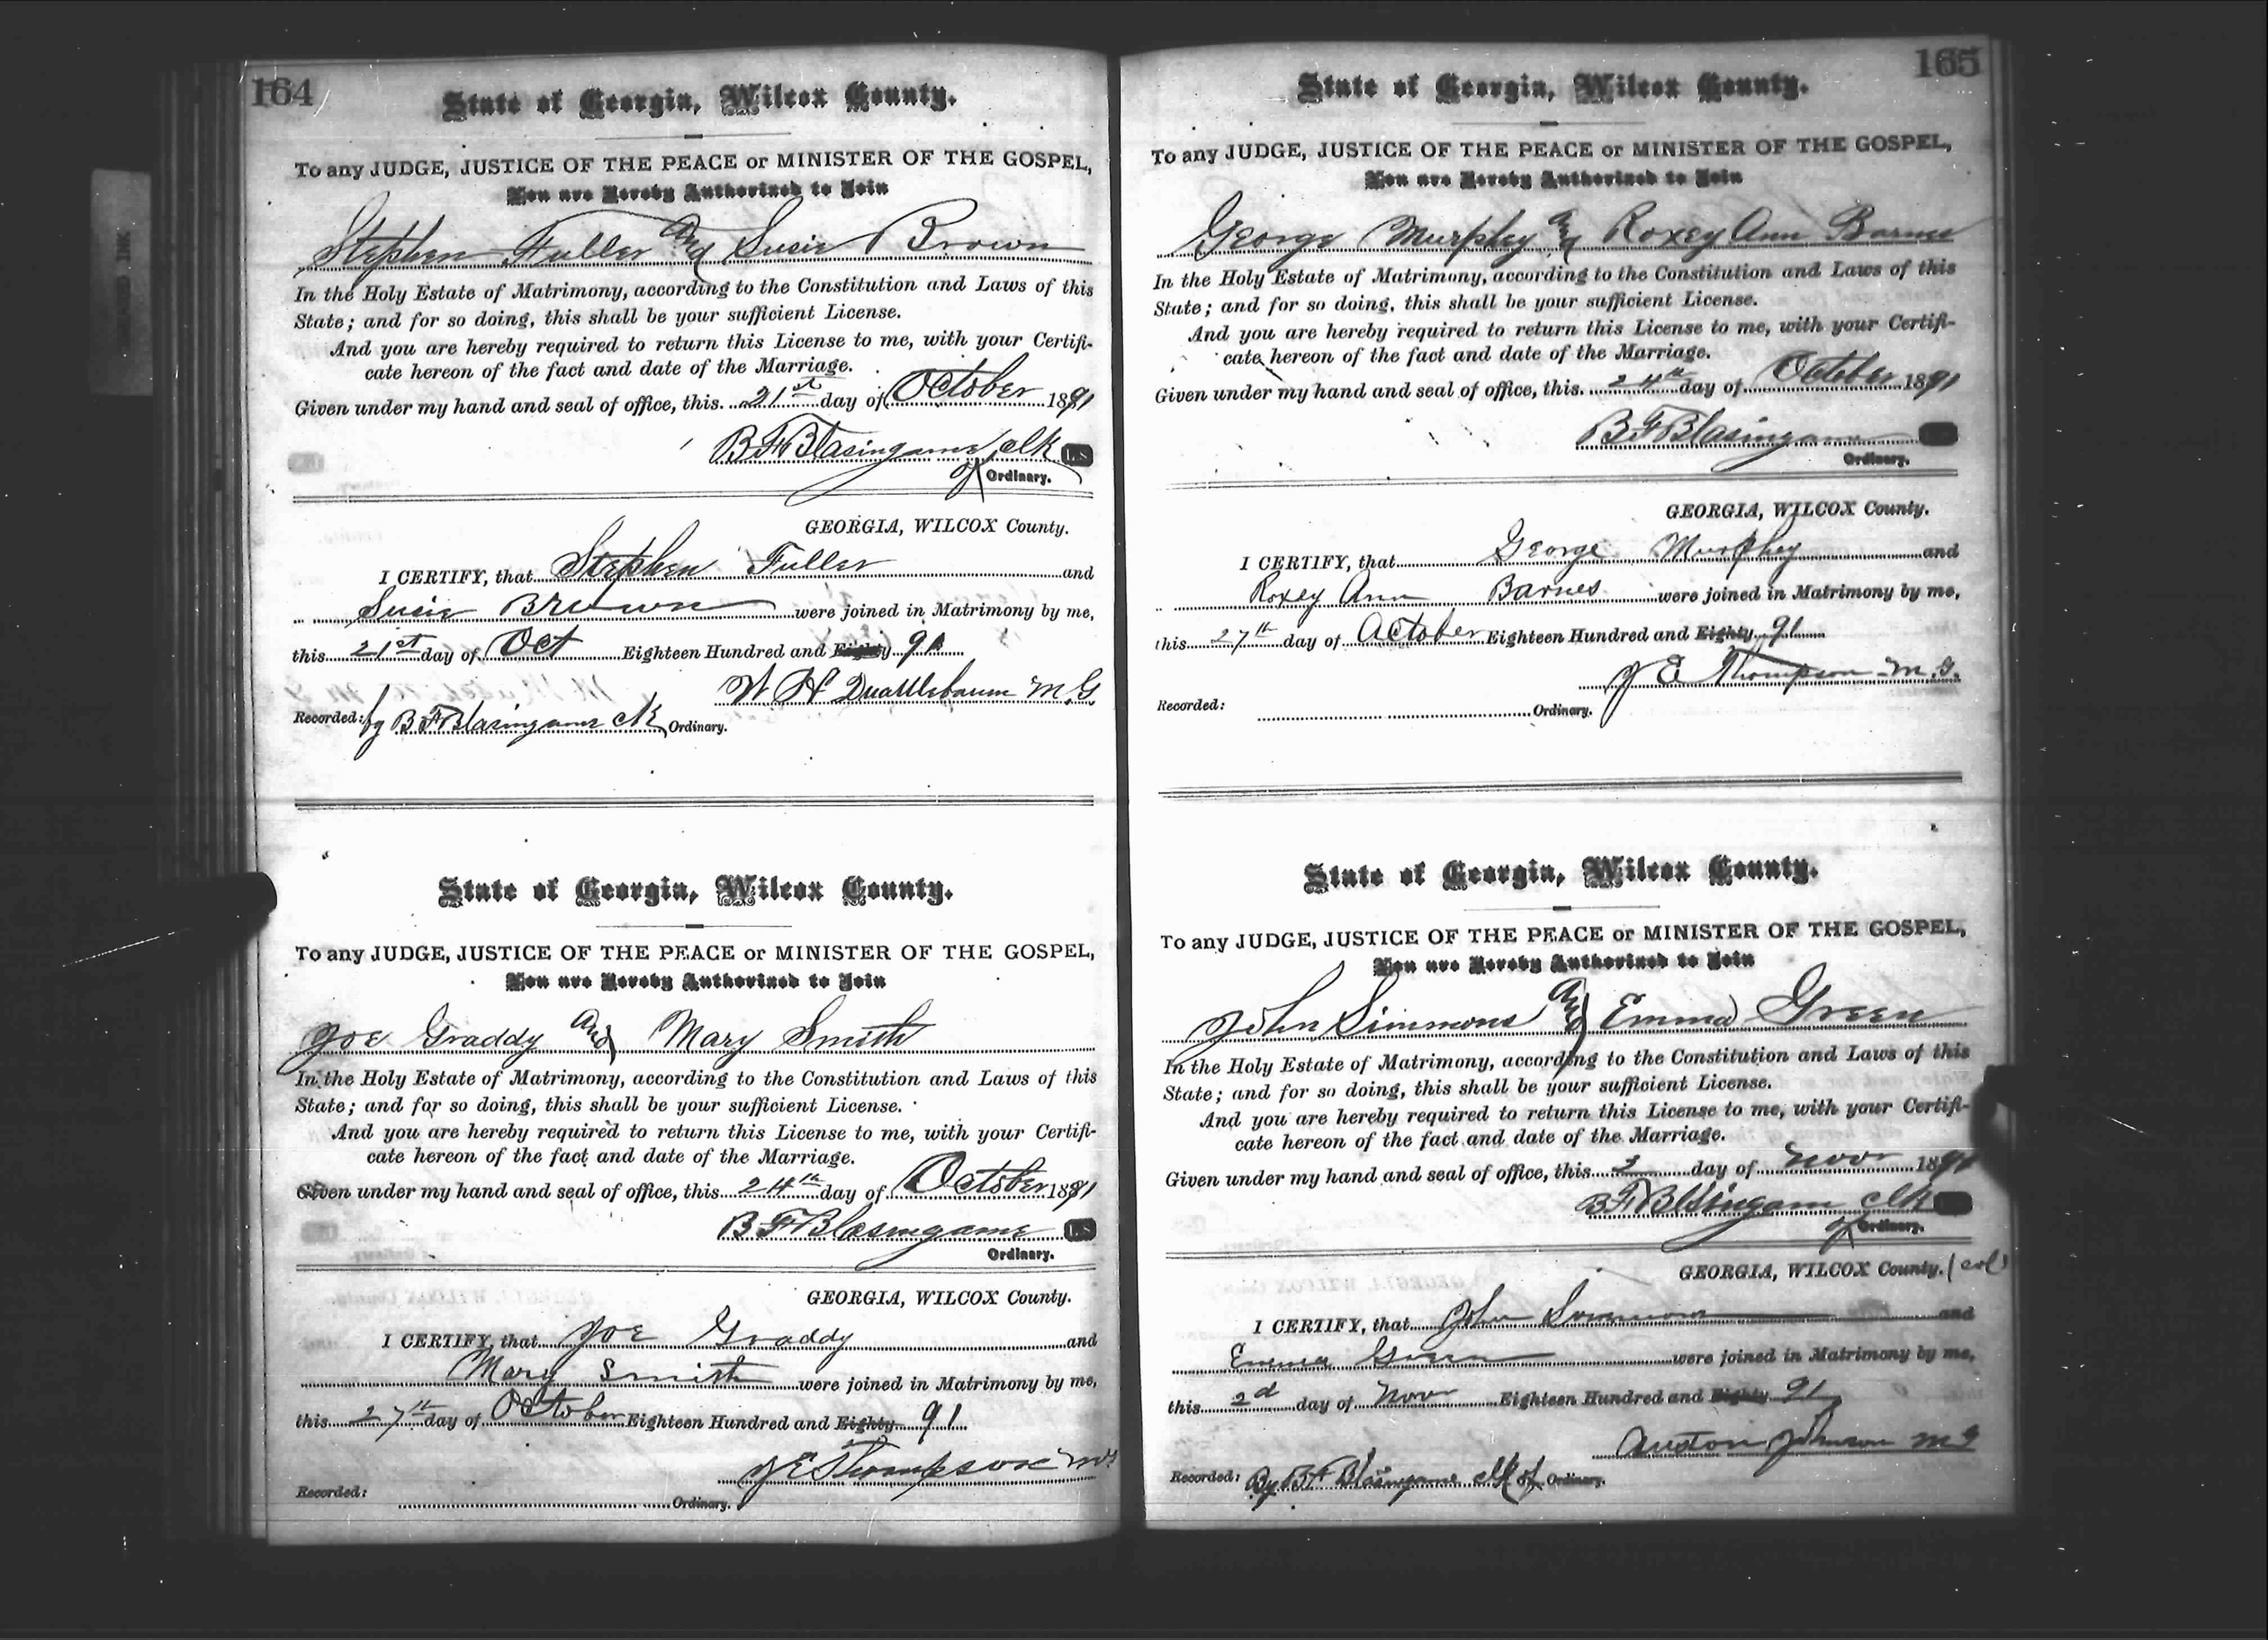 164
State of Georgia, Wilcox County.
To any JUDGE, JUSTICE OF THE PEACE or MINISTER OF THE GOSPEL,
You are Hereby Authorized to Join
Stephen Fuller and Susie Brown
In the Holy Estate of Matrimony, according to the Constitution and Laws of this
State; and for so doing, this shall be your sufficient License.
And you are hereby required to return this License to me, with your Certifi-
cate hereon of the fact and date of the Marriage.
Given under my hand and seal of office, this 21st day of October 1891
B F Blasingame clk L.S.
of Ordinary.
GEORGIA, WILCOX County.
I CERTIFY, that Stephen Fuller and
Susie Brown were joined in Matrimony by me,
this 21st day of Oct Eighteen Hundred and Eighty 91
W H Quattlebaum M G
Recorded: by B F Blasingame clk Ordinary.
State of Georgia, Wilcox County.
To any JUDGE, JUSTICE OF THE PEACE or MINISTER OF THE GOSPEL,
You are Hereby Authorized to Join
Joe Graddy and Mary Smith
In the Holy Estate of Matrimony, according to the Constitution and Laws of this
State; and for so doing, this shall be your sufficient License.
And you are hereby required to return this License to me, with your Certifi-
cate hereon of the fact and date of the Marriage.
Given under my hand and seal of office, this 24th day of October 1891
B F Blasingame L.S.
Ordinary.
GEORGIA, WILCOX County.
I CERTIFY, that Joe Graddy and
Mary Smith were joined in Matrimony by me,
this 27th day of October Eighteen Hundred and Eighty 91
J E Thompson MG
Recorded: Ordinary.
165
State of Georgia, Wilcox County.
To any JUDGE, JUSTICE OF THE PEACE or MINISTER OF THE GOSPEL,
You are Hereby Authorized to Join
George Murphey and Roxey Ann Barnes
In the Holy Estate of Matrimony, according to the Constitution and Laws of this
State; and for so doing, this shall be your sufficient License.
And you are hereby required to return this License to me, with your Certifi-
cate hereon of the fact and date of the Marriage.
Given under my hand and seal of office, this 24th day of October 1891
B F Blasingame
Ordinary.
GEORGIA, WILCOX County.
I CERTIFY, that George Murphey and
Roxey Ann Barnes were joined in Matrimony by me,
this 27th day of October Eighteen Hundred and Eighty 91
J E Thompson M.G.
Recorded: Ordinary.
State of Georgia, Wilcox County.
To any JUDGE, JUSTICE OF THE PEACE or MINISTER OF THE GOSPEL,
You are Hereby Authorized to Join
John Simmons and Emma Green
In the Holy Estate of Matrimony, according to the Constitution and Laws of this
State; and for so doing, this shall be your sufficient License.
And you are hereby required to return this License to me, with your Certifi-
cate hereon of the fact and date of the Marriage.
Given under my hand and seal of office, this 2 day of Novr 1891
B F Blasingam clk
of Ordinary.
GEORGIA, WILCOX County. (col)
I CERTIFY, that John Simmons and
Emma Green were joined in Matrimony by me,
this 2d day of Novr Eighteen Hundred and Eighty 91
Auston Johnson M G
Recorded: By B F Blasingame clk of Ordinary.